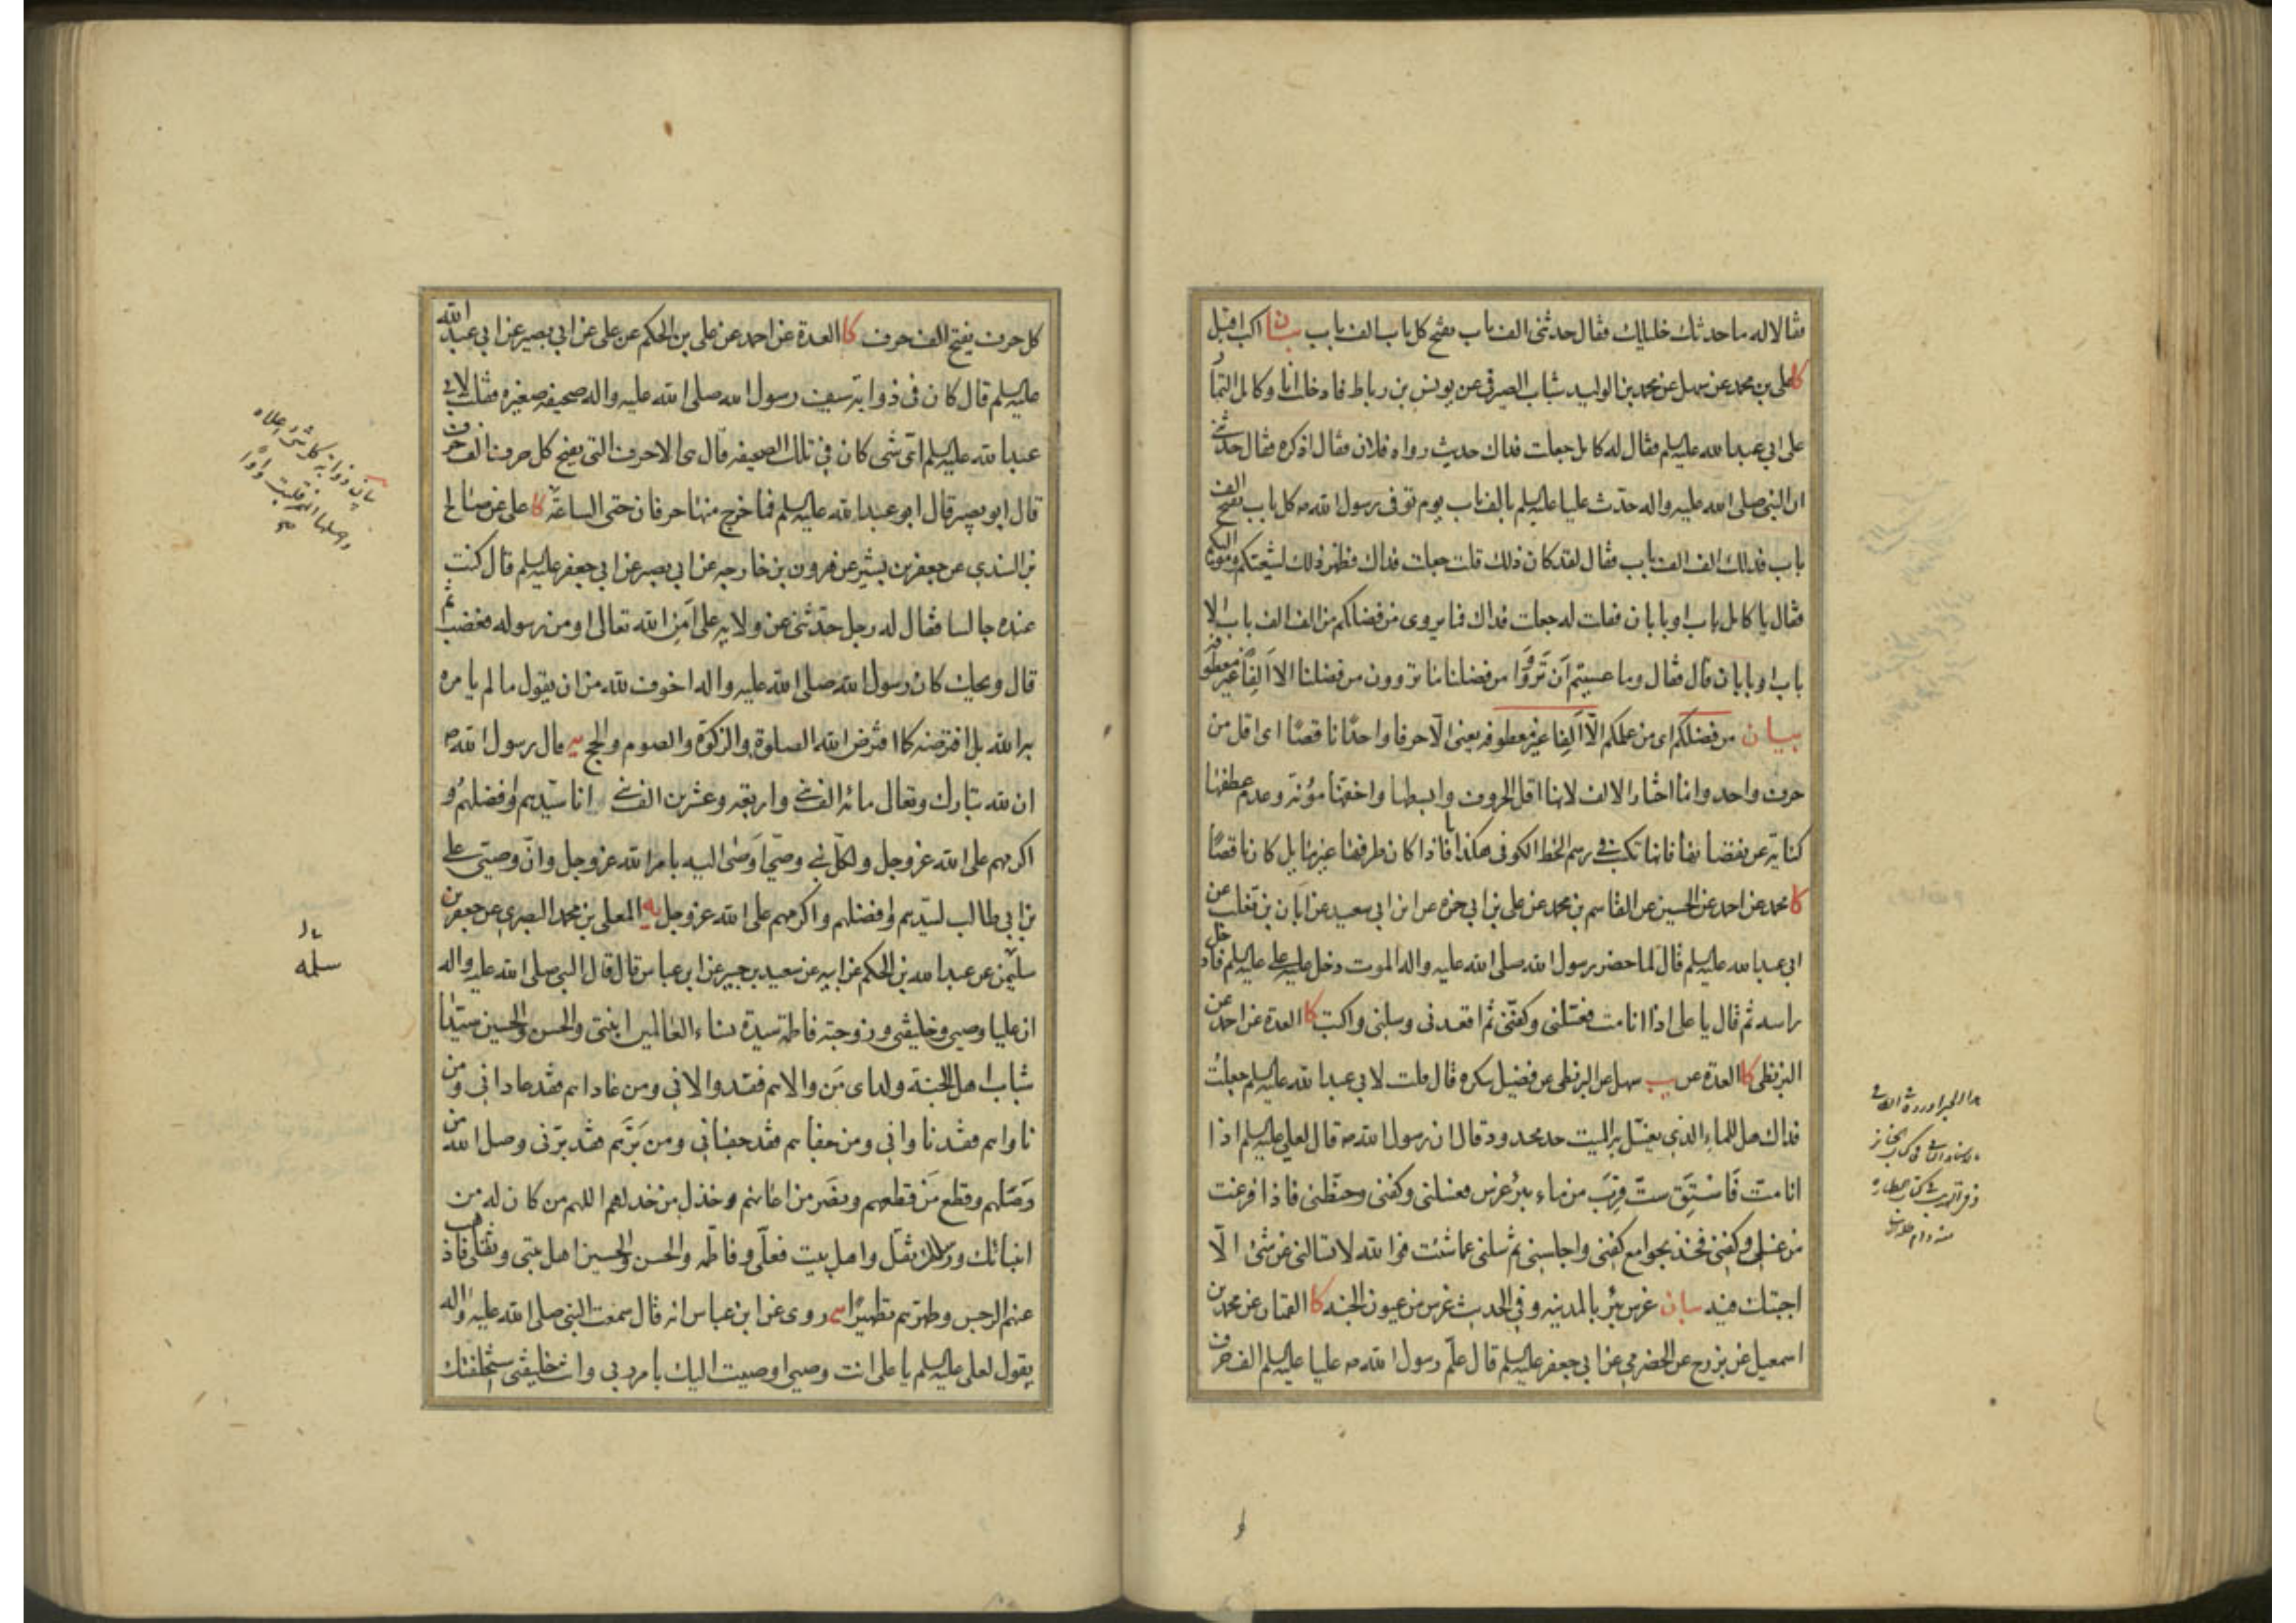 فقالا له ما حدثك خليلك فقال حدثنى الف باب يفتح كل باب الف باب بيان اكب اقبل
كا على بن محمد عن سهل عن محمد بن الوليد شباب الصيرفى عن يونس بن رباط قال دخلت انا وكامل التمار
على ابى عبد الله عليه السلم فقال له كامل جعلت فداك حديث رواه فلان فقال اذكره فقال حدثنى
ان النبى صلى الله عليه واله حدّث عليا عليه السلم بالف باب يوم توفى رسول الله ص كل باب يفتح الف
باب فذلك الف الف باب فقال لقد كان ذلك قلت جعلت فداك فظهر ذلك لشيعتكم ومواليكم
فقال يا كامل باب او بابان فقلت له جعلت فداك فما يروى من فضلكم من الف الف باب الا
باب او بابان قال فقال وما عسيتم اَن تَروُوا من فضلنا ما تروون من فضلنا الا اَلِفًا غير معطوفة
بيان من فضلكم اى من علمكم الّا اَلِفًا غير معطوفه يعنى الّا حرفا واحدًا ناقصًا اى اقل من
حرف واحد وانما اختار الالف لانها اقل الحروف وابسطها واخفها مؤنة وعدم عطفها
كناية عن نقصانها فانها تكتب فى رسم الخط الكوفى هكذا ا فاذا كان طرفها غير مايل كان ناقصًا
كا محمد عن احمد عن الحسين عن القاسم بن محمد عن على بن ابى حمزه عن ابن ابى سعيد عن اَبان بن تغلب عن
ابى عبد الله عليه السلم قال لما حضر رسول الله صلى الله عليه واله الموت دخل عليه على عليه السلم فادخل
راسه ثم قال يا على اذا انا مت فغسّلنى وكفّنى ثم اقعدنى وسلنى واكتب كا العدة عن احمد عن
البزنطى كا العدة عن سهل عن البزنطى عن فضيل سكره قال قلت لابى عبد الله عليه السلم جعلتُ
فداك هل للماء الذى يغسّل به الميت حد محدود قال ان رسول الله ص قال لعلى عليه السلم اذا
انا متّ فَاسْتَقِ ستّ قِرَبَ من ماء بئر غرس فغسلنى وكفنى وحنّطنى فاذا فرغت
من غسلى وكفنى فخذ بجوامع كفنى واجلسنى ثم سلنى عما شئت فو الله لا تسالنى عن شئ الّا
اجبتك فيه بيان غرس بئر بالمدينه وفى الحديث غرس من عيون الجنه كا القمّيان عن محمد بن
اسمعيل عن بزرج عن الحضرمى عن ابى جعفر عليه السلم قال علّم رسول الله ص عليا عليه السلم الف حرف
كل حرف يفتح الف حرف كا العدة عن احمد عن على بن الحكم عن على عن ابى بصير عن ابى عبد الله
عليه السلم قال كان فى ذوابة سيف رسول الله صلى الله عليه واله صحيفه صغيره فقلت لابى
عبد الله عليه السلم اىّ شى كان فى تلك الصحيفه قال هى الاحرف التى يفتح كل حرف الف حرف
قال ابو بصير قال ابو عبد الله عليه السلم فما خرج منها حرفان حتى الساعةَ كا على عن صالح
بن السندى عن جعفر بن بشير عن هرون بن خارجه عن ابى بصير عن ابى جعفر عليه السلم قال كنت
عنده جالسا فقال له رجل حدّثنى عن ولايه على اَمِن الله تعالى او من رسوله فغضب ثم
قال ويحك كان رسول الله صلى الله عليه واله اخوف لله من ان يقول ما لم يامره
به الله بل افترضه كما افترض الله الصلوة والزكوة والصوم والحج يه قال رسول الله ص
ان لله تبارك وتعالى مائه الف نبى واربعه وعشرين الف نبى انا سيّدهم وافضلهم و
اكرمهم على الله عز وجل ولكلّ نبى وصىّ اوصى اليه بامر الله عز وجل وانّ وصيّى على
بن ابى طالب لسيّدهم وافضلهم واكرمهم على الله عز وجل يه المعلى بن محمد البصرى عن جعفر بن
سليمن عن عبد الله بن الحكم عن ابيه عن سعيد بن جبير عن ابن عباس قال قال النبى صلى الله عليه واله
ان عليا وصيى وخليفتى وزوجته فاطمة سيدة نساء العالمين ابنتى والحسن والحسين سيّدا
شباب اهل الجنة ولداى مَن والاهم فقد والانى ومن عاداهم فقد عادانى ومن
ناواهم فقد ناوانى ومن جفاهم فقد جفانى ومن بَرّهم فقد برّنى وصل الله من
وَصَلهم وقطع مَن قطعهم ونصر من اعانهم وخذل من خذلهم اللهم من كان له من
انبيائك ورسلك ثقل واهل بيت فعلىّ وفاطمه والحسن والحسين اهل بيتى وثقلى فاذهب
عنهم الرجس وطهّرهم تطهيرًا يه روى عن ابن عباس انه قال سمعت النبى صلى الله عليه واله
يقول لعلى عليه السلم يا على انت وصيى اوصيت اليك بامر ربى وانت خليفتى استخلفتك
سلمه